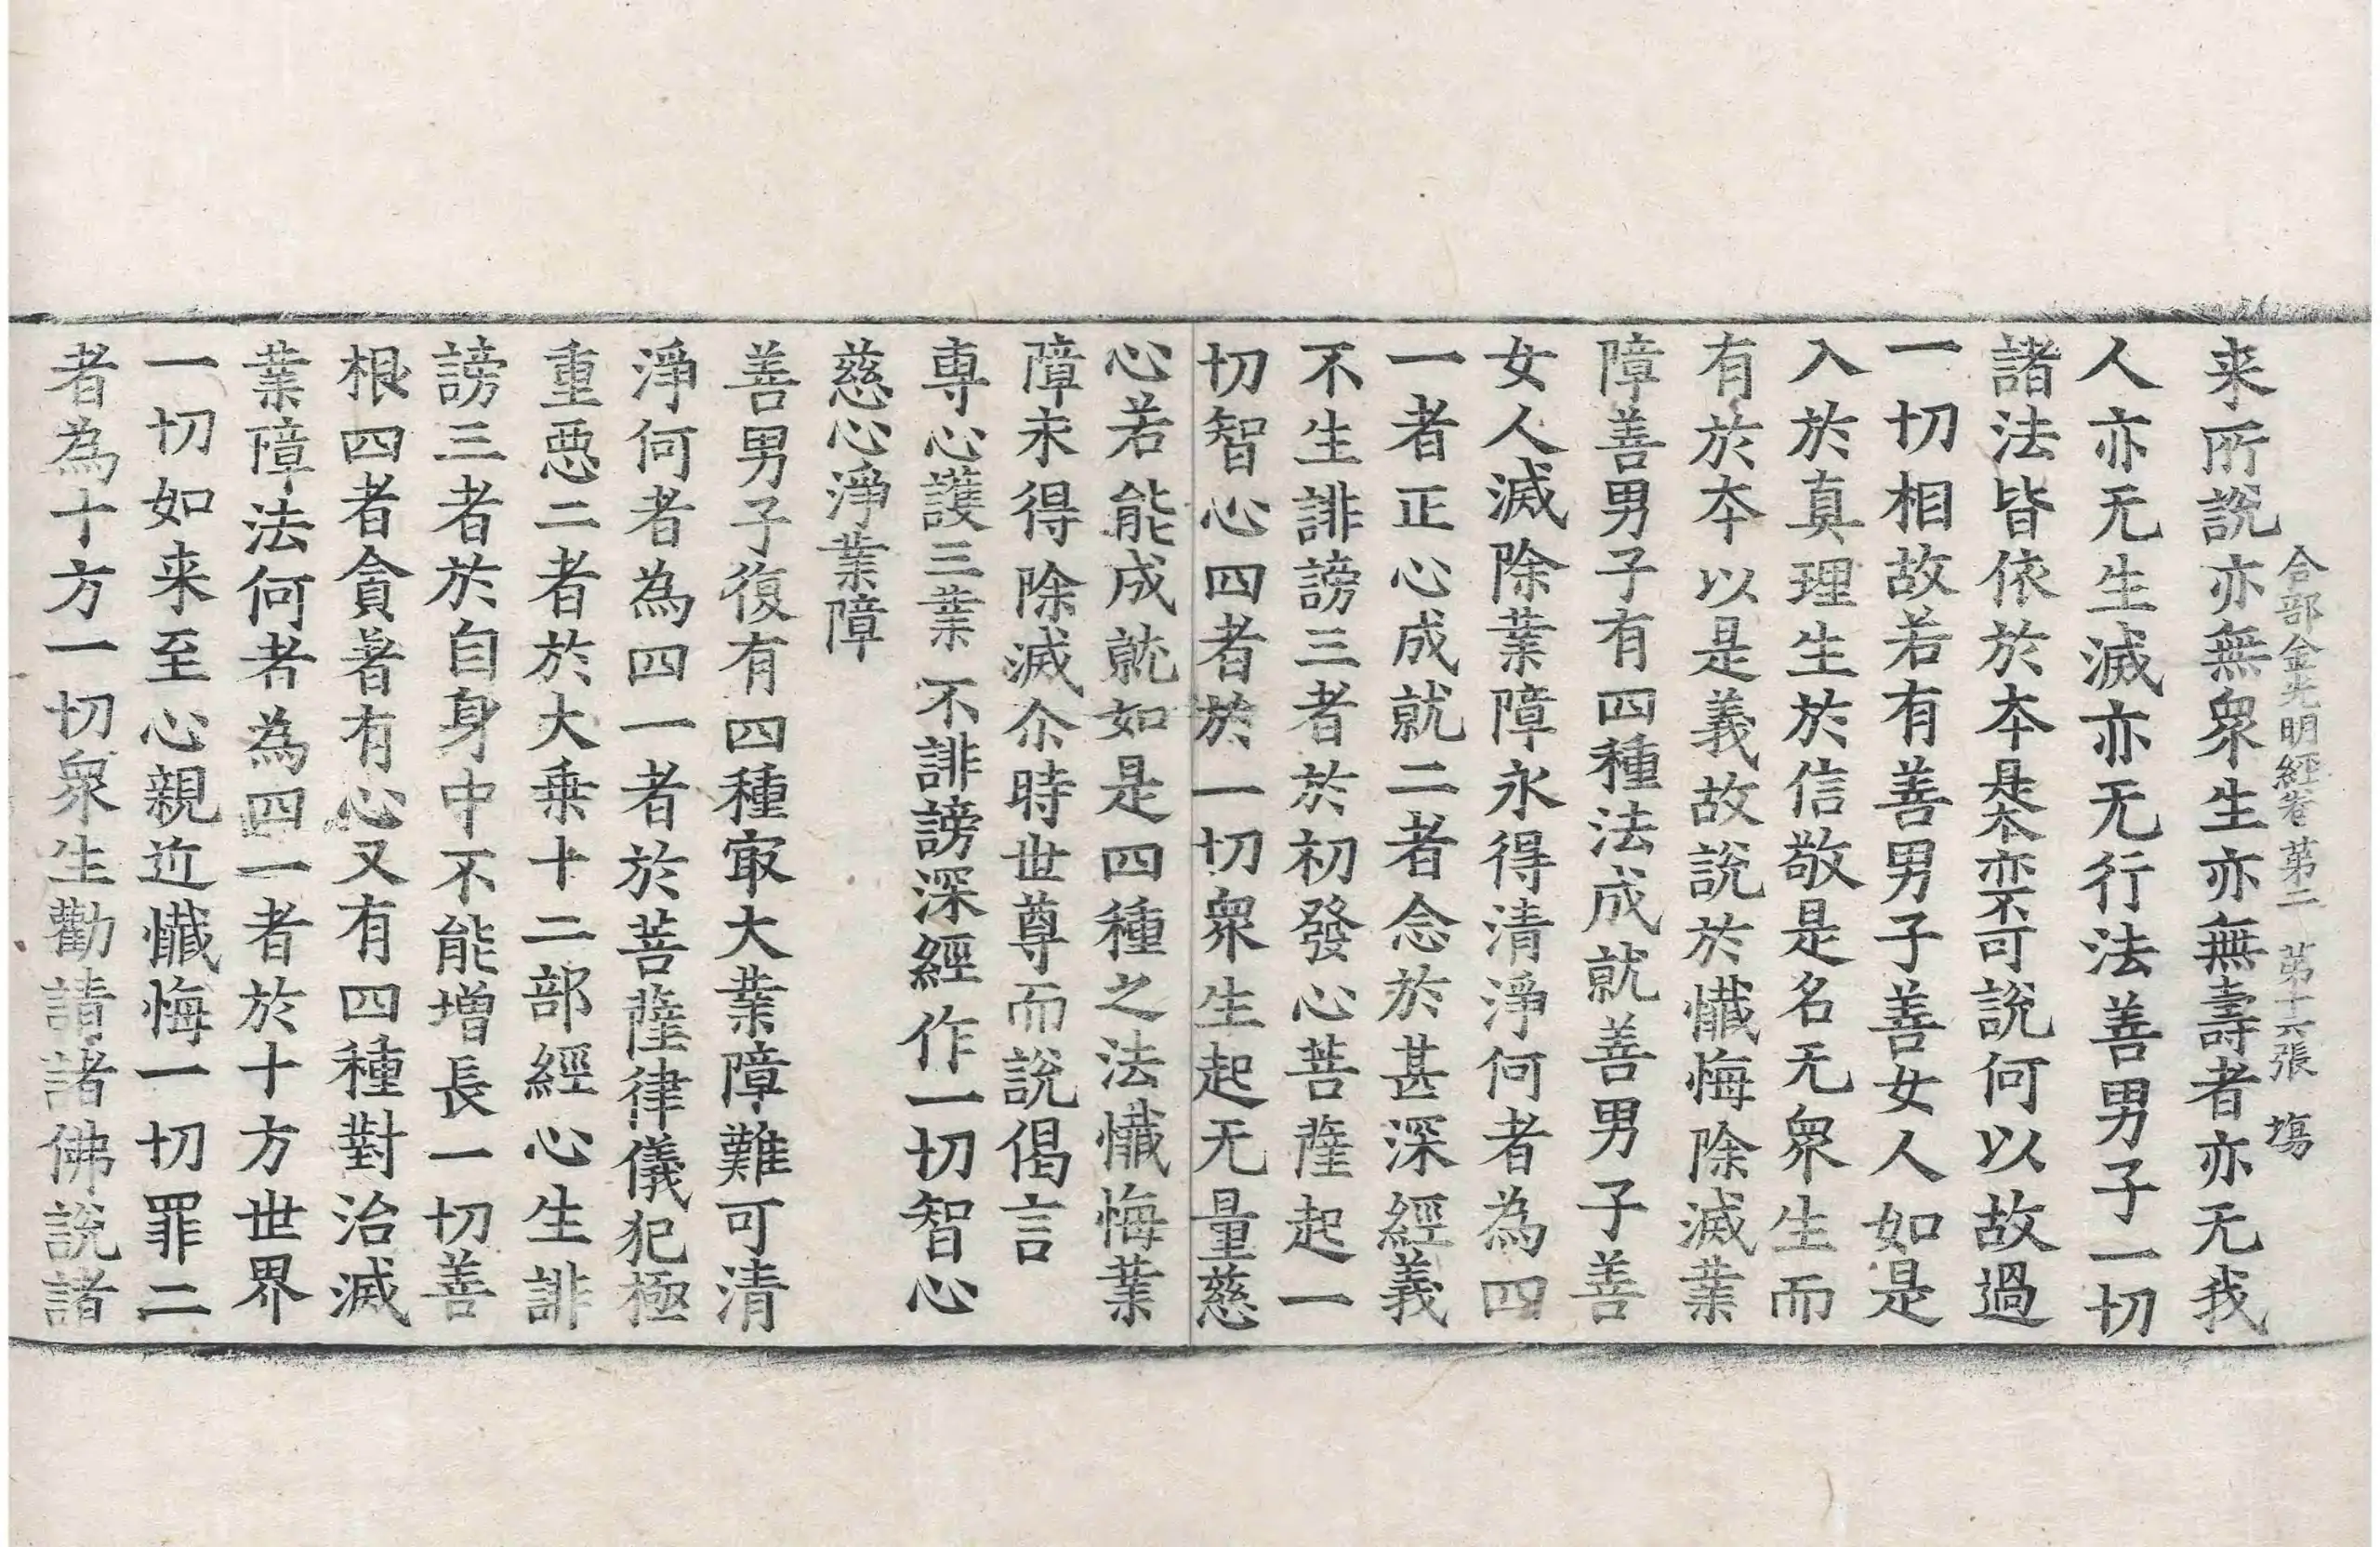 合部金光明經卷第二 第十六張 塲
来所說亦無衆生亦無壽者亦无我
人亦无生滅亦无行法善男子一切
諸法皆依於本是本亦不可說何以故過
一切相故若有善男子善女人如是
入於真理生於信敬是名无衆生而
有於本以是義故說於懺悔除滅業
障善男子有四種法成就善男子善
女人滅除業障永得清淨何者為四
一者正心成就二者念於甚深經義
不生誹謗三者於初發心菩薩起一
切智心四者於一切衆生起无量慈
心若能成就如是四種之法懺悔業
障未得除滅尒時世尊而說偈言
専心護三業 不誹謗深經 作一切智心
慈心淨業障
善男子復有四種㝡大業障難可清
淨何者為四一者於菩薩律儀犯極
重惡二者於大乗十二部經心生誹
謗三者於自身中不能增長一切善
根四者貪著有心又有四種對治滅
業障法何者為四一者於十方世界
一切如来至心親近懺悔一切罪二
者為十方一切衆生勸請諸佛說諸